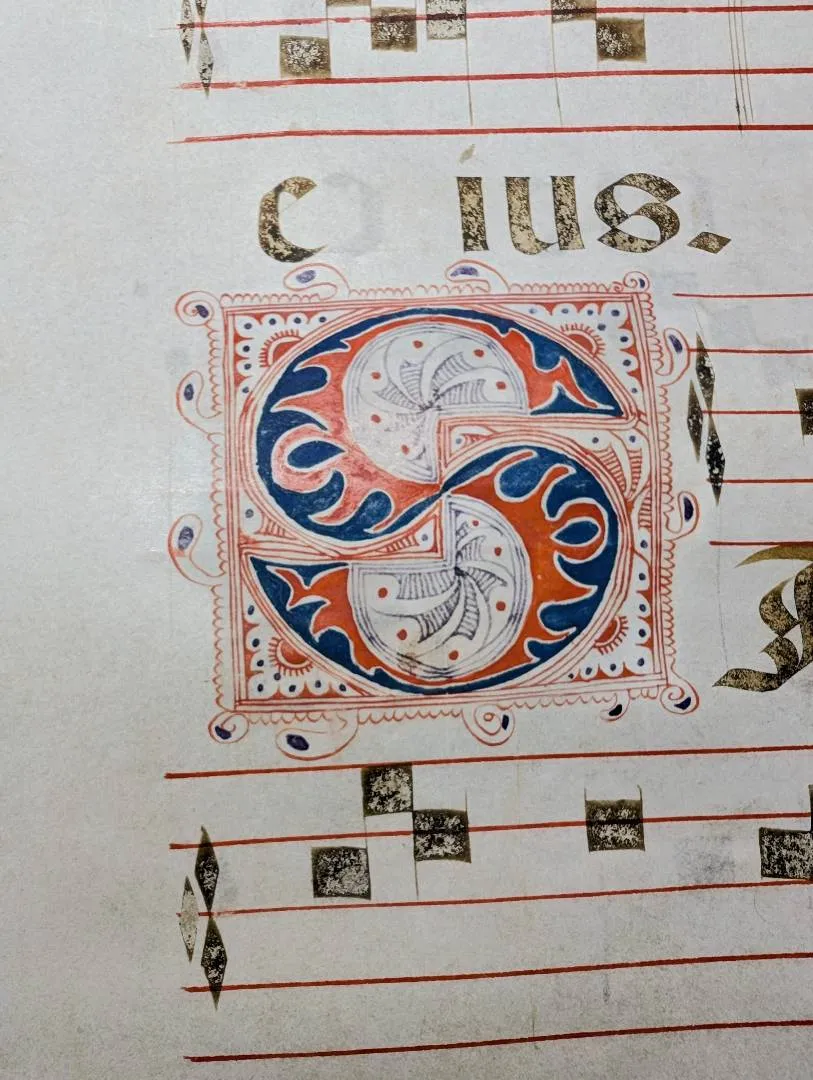 c íus.
S